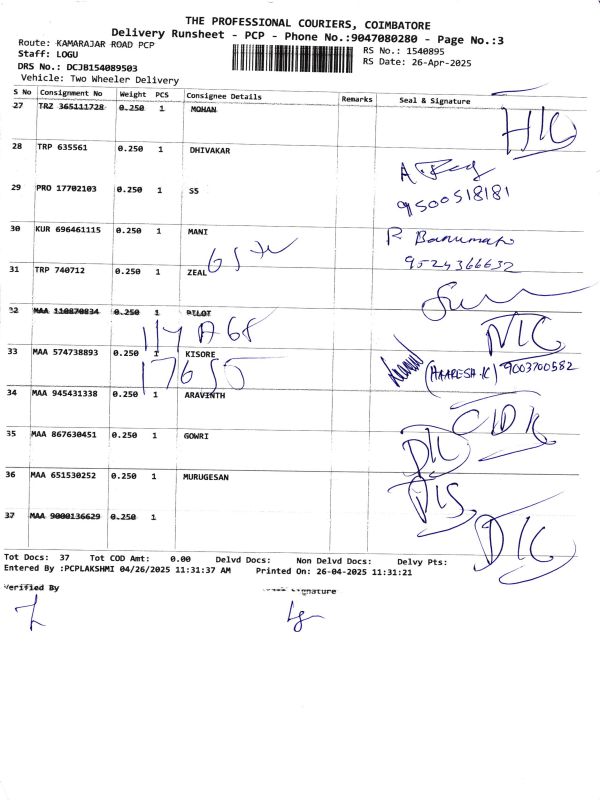 THE PROFESSIONAL COURIERS, COIMBATORE
Delivery Runsheet - PCP - Phone No.:9047080280 - Page No.:3
Route: KAMARAJAR ROAD PCP
Staff: LOGU
RS No.: 1540895
DRS No.: DCJB154089503
RS Date: 26-Apr-2025
Vehicle: Two Wheeler Delivery
S No Consignment No Weight PCS Consignee Details Remarks Seal & Signature
27 TRZ 365111728 0.250 1 MOHAN
28 TRP 635561 0.250 1 DHIVAKAR
29 PRO 17702103 0.250 1 SS
9500518181
30 KUR 696461115 0.250 1 MANI
R Banumati
9524366632
31 TRP 740712 0.250 1 ZEAL
32 MAA 110870834 0.250 1 PILOT
33 MAA 574738893 0.250 1 KISORE
(HAARESH.K) 9003700582
34 MAA 945431338 0.250 1 ARAVINTH
35 MAA 867630451 0.250 1 GOWRI
36 MAA 651530252 0.250 1 MURUGESAN
37 MAA 9000136629 0.250 1
Tot Docs: 37 Tot COD Amt: 0.00 Delvd Docs: Non Delvd Docs: Delvy Pts:
Entered By :PCPLAKSHMI 04/26/2025 11:31:37 AM Printed On: 26-04-2025 11:31:21
Verified By Signature